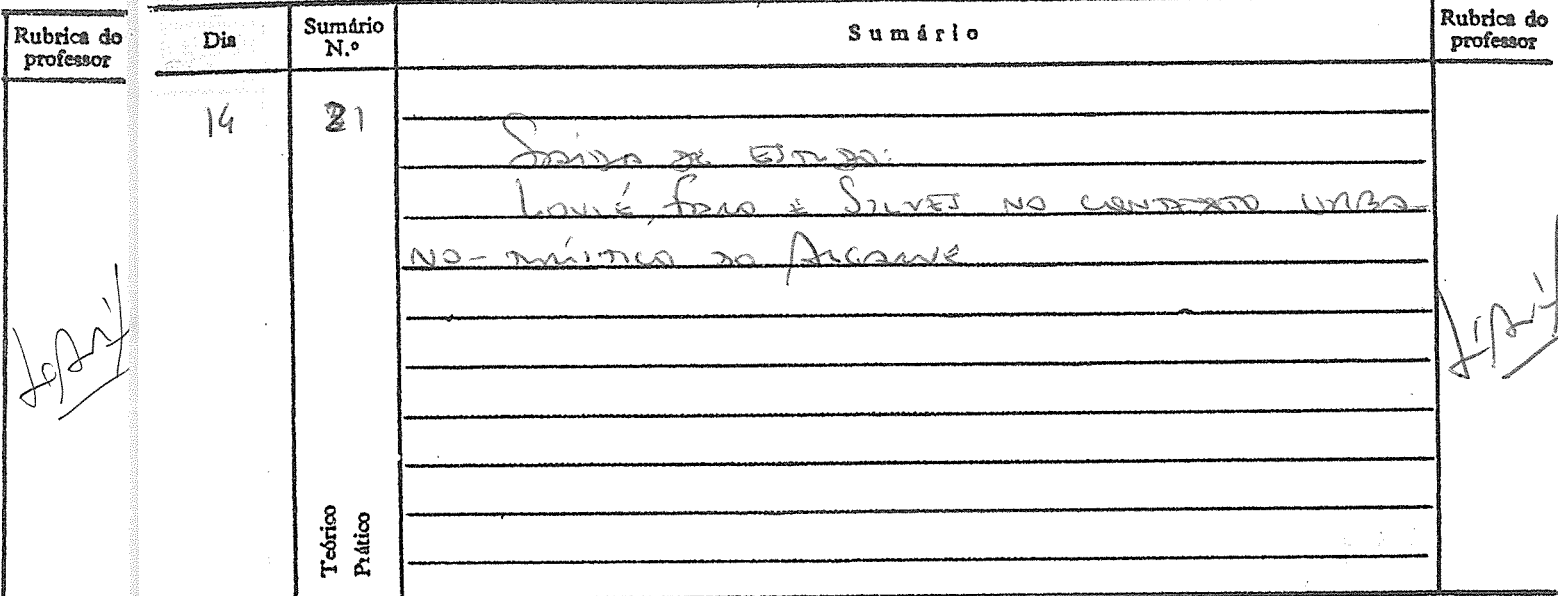 Rubrica do professor
Dia
Sumário N.º
Sumário
Rubrica do professor
14
21
Saída de Estudo:
Loulé, Faro e Silves no contexto urba-
no-turístico do Algarve
Teórico
Prático